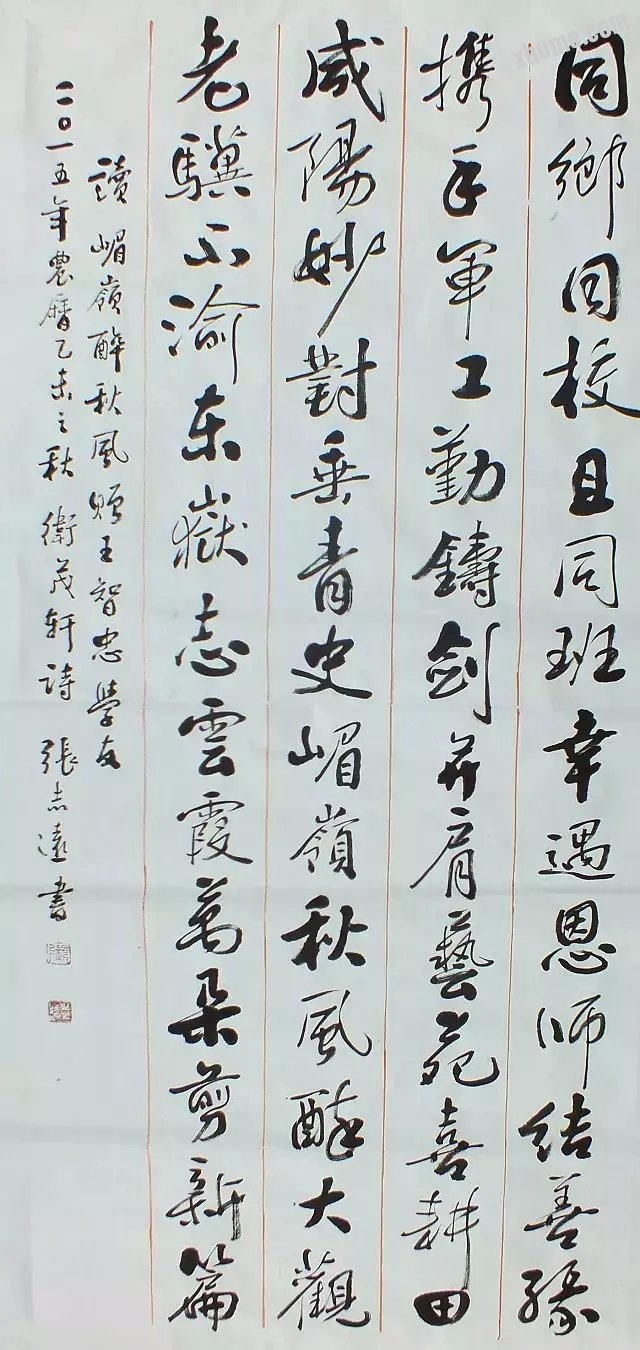 同鄉同校且同班幸遇恩师结善缘
携手军工勤鑄剑并肩藝苑喜耕田
咸陽妙對垂青史嵋嶺秋风醉大觀
老驥不渝东嶽志雲霞萬朵剪新篇
讀嵋嶺醉秋风赠王智忠學友
二〇一五年農曆乙未之秋 衛茂轩诗 張志遠書